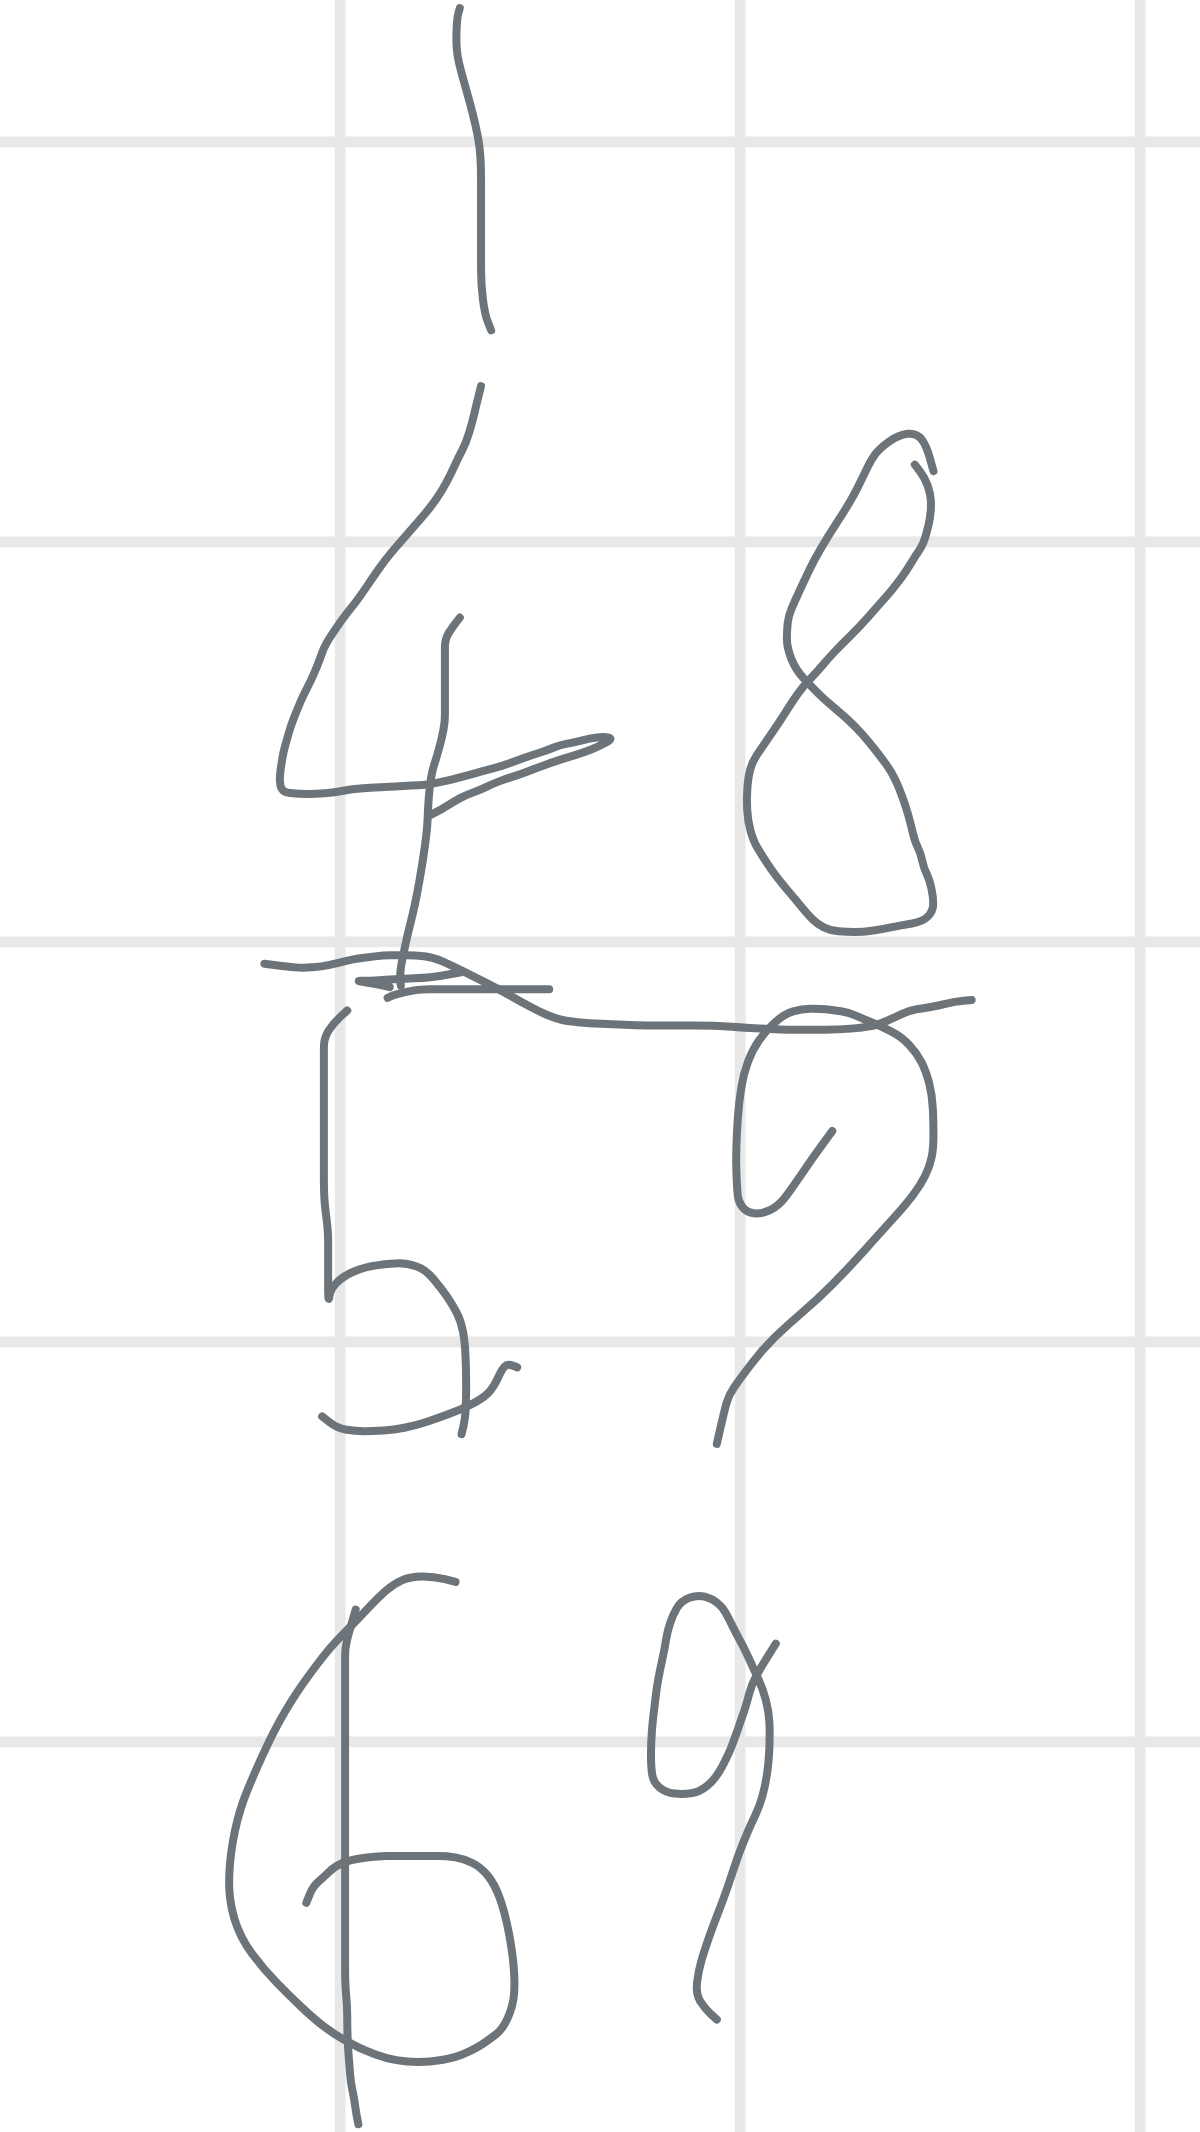 1
48
59
69